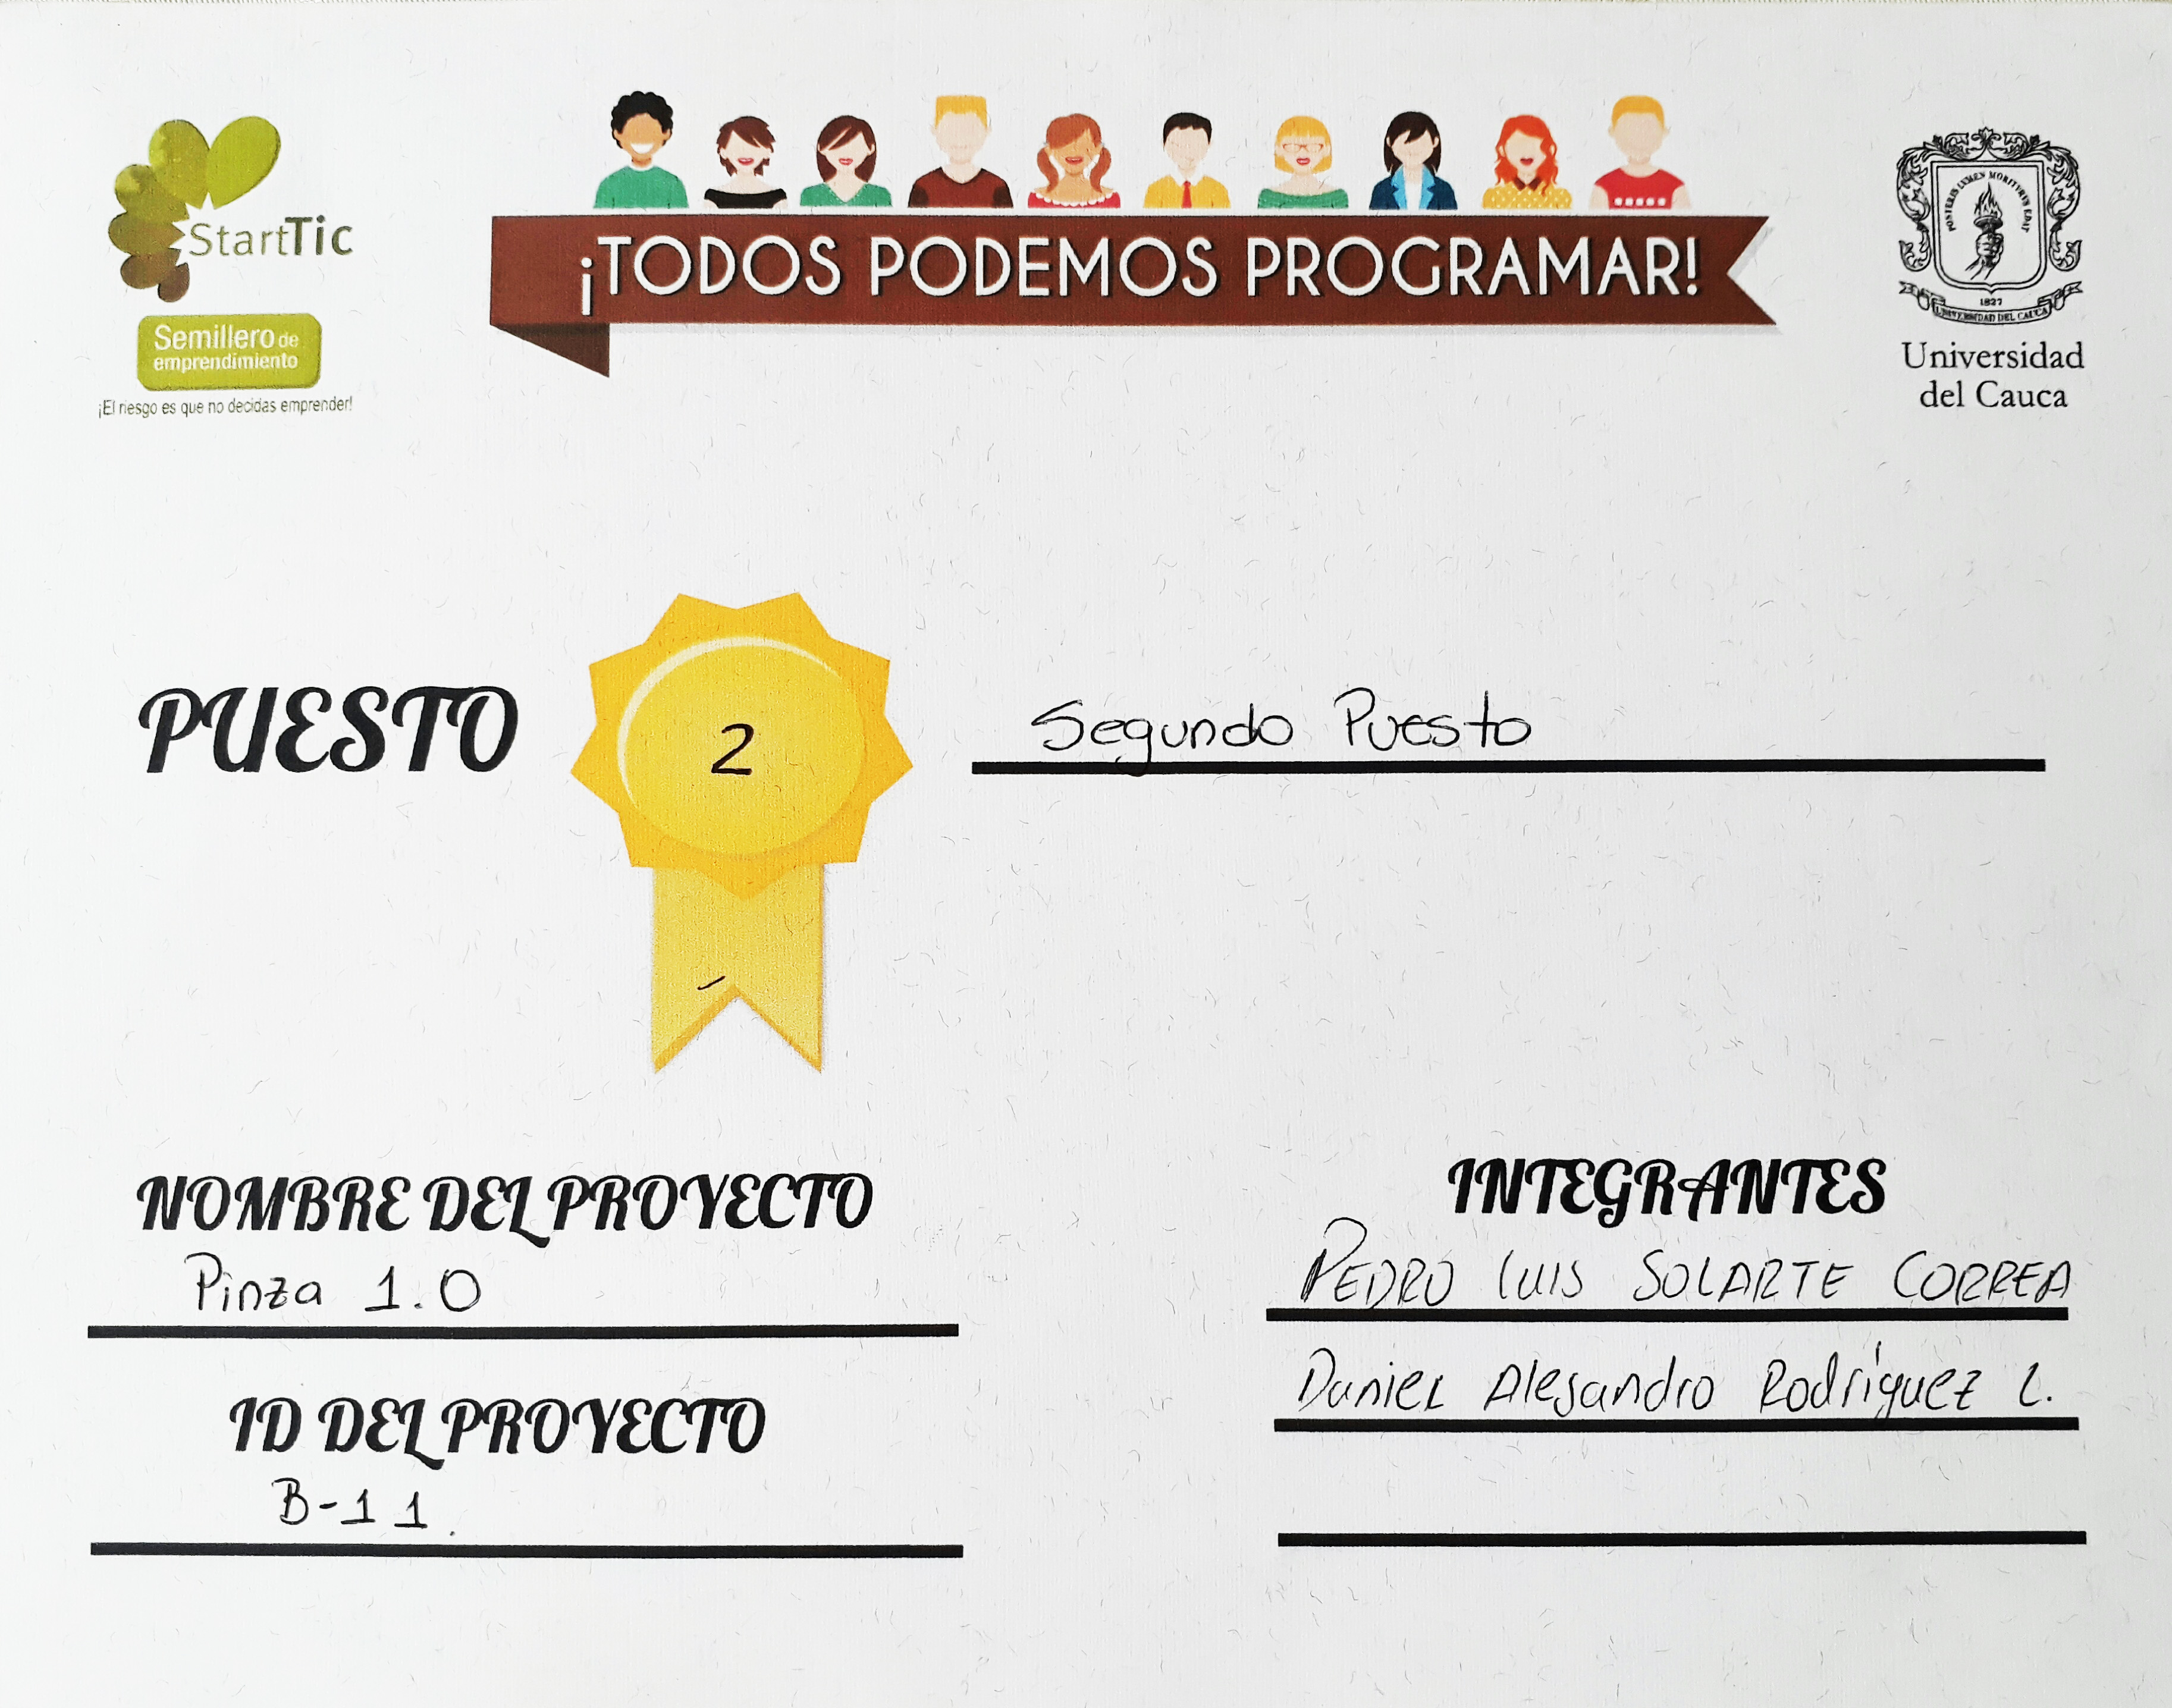 StartTic
Semillero de
emprendimiento
¡El riesgo es que no decidas emprender!
¡TODOS PODEMOS PROGRAMAR!
POSTERIS LVMEN MORITVRVS EDAT
1827
UNIVERSIDAD DEL CAUCA
Universidad
del Cauca
PUESTO
2
Segundo Puesto
NOMBRE DEL PROYECTO
Pinza 1.0
ID DEL PROYECTO
B-11.
INTEGRANTES
PEDRO LUIS SOLARTE CORREA
Daniel Alejandro Rodríguez L.